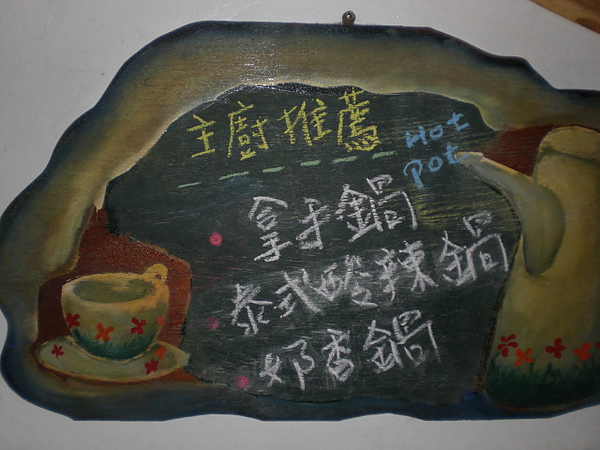 主廚推薦
Hot
Pot
拿手鍋
泰式酸辣鍋
奶香鍋